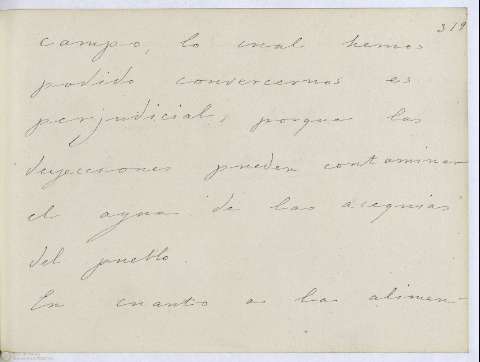 319
campo, lo cual hemos
podido convercernos es
perjudicial, porque las
deyecciones pueden contaminar
el agua de las acequias
del pueblo.
En cuanto a los alimen-